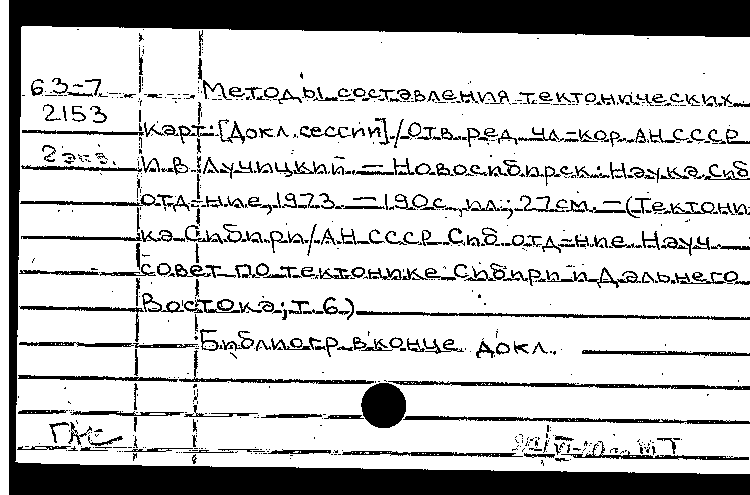 63-7
2153
2 экз.
Методы составления тектонических
карт: [Докл. сессии] / Отв. ред. чл.-кор. АН СССР
И.В. Лучицкий. — Новосибирск: Наука. Сиб
отд-ние, 1973. — 190с., ил.; 27см. — (Тектони-
ка Сибири / АН СССР Сиб. отд-ние. Науч.
совет по тектонике Сибири и Дальнего
Востока; т. 6)
Библиогр. в конце докл.